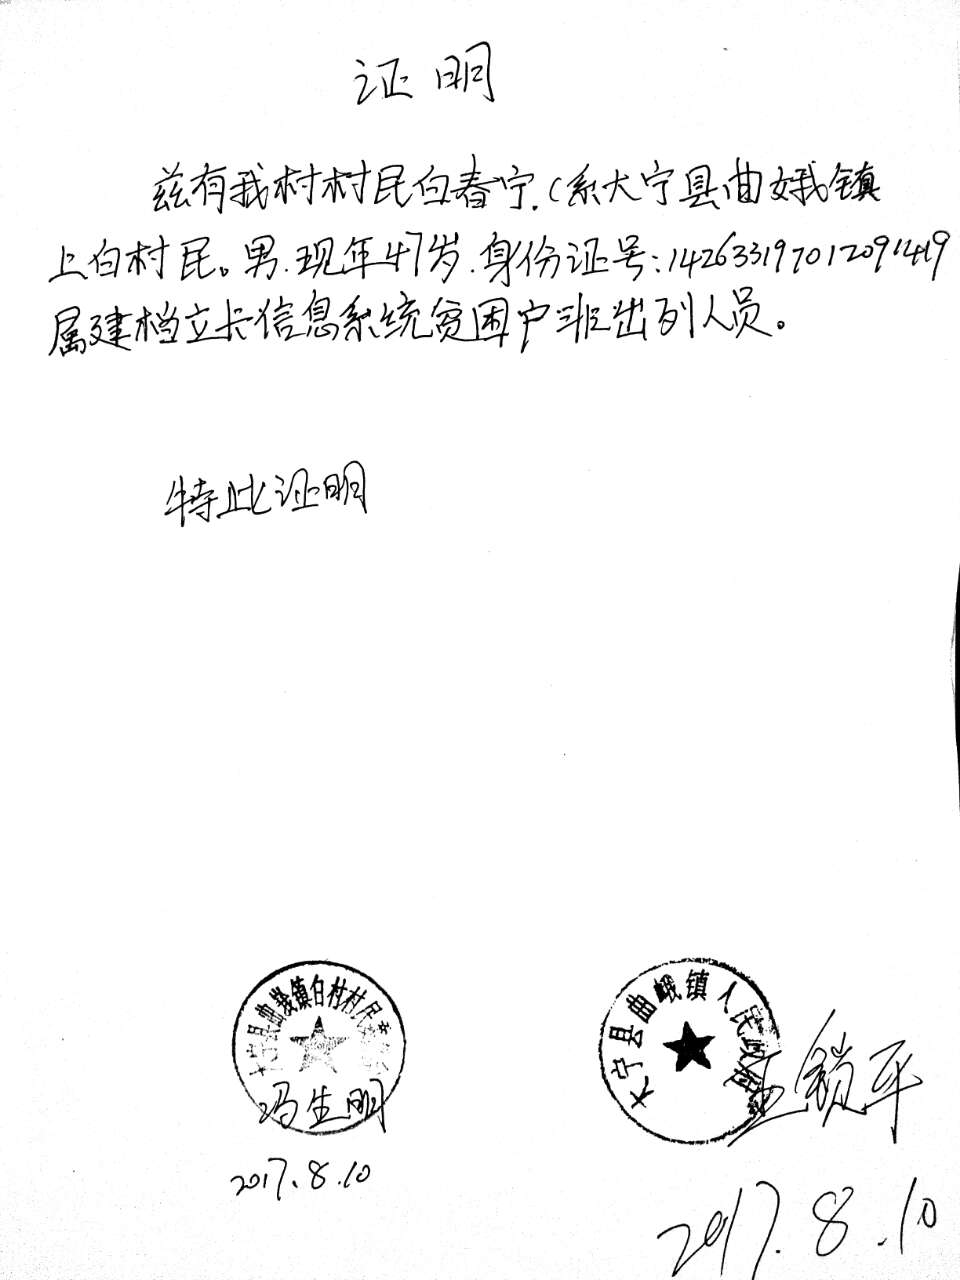 证明
兹有我村村民白春宁.(系大宁县曲峨镇
上白村民。男.现年47岁.身份证号:142633197012091419
属建档立卡信息系统贫困户非出列人员。
特此证明
大宁县曲峨镇白村村民委
冯生明
2017.8.10
大宁县曲峨镇人民政府
王锁平
2017.8.10